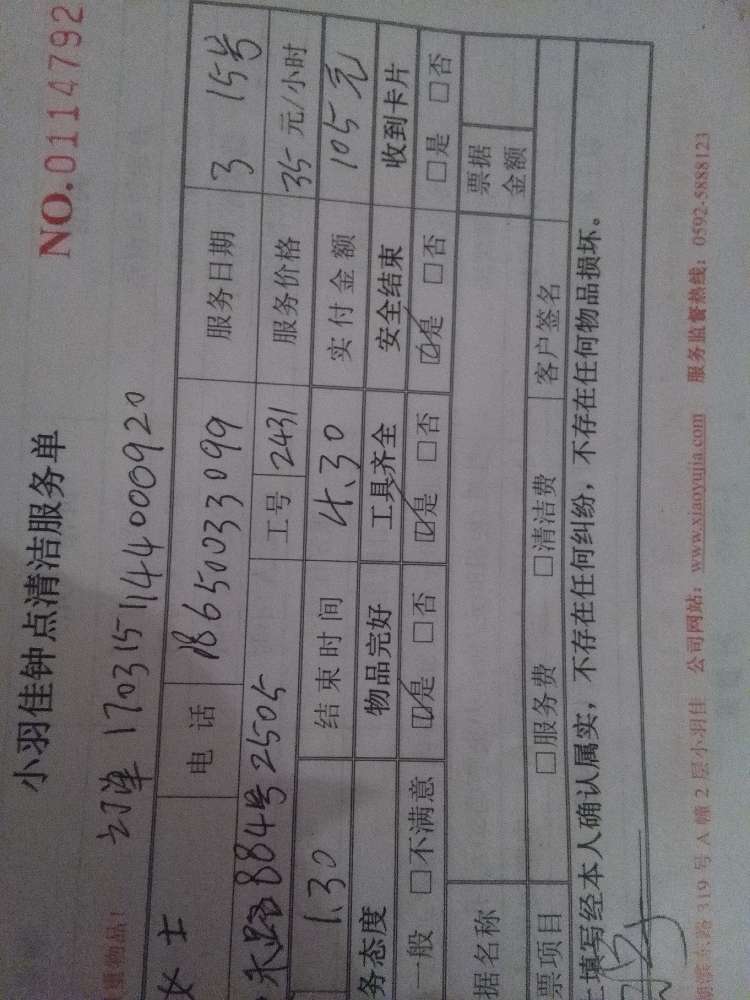 小羽佳钟点清洁服务单
NO.0114792
1703151144000920
女士 电话 18650033099 服务日期 3 15号
禾路884号2505 工号 2431 服务价格 35元/小时
1.30 结束时间 4.30 实付金额 105元
务态度 物品完好 工具齐全 安全结束 收到卡片
一般 □不满意 ☑是 □否 ☑是 □否 ☑是 □否 □是 □否
据名称 票据金额
票项目 □服务费 □清洁费 客户签名
填写经本人确认属实，不存在任何纠纷，不存在任何物品损坏。
滨东路319号A幢2层小羽佳 公司网站：www.xiaoyujia.com 服务监督热线：0592-5888123